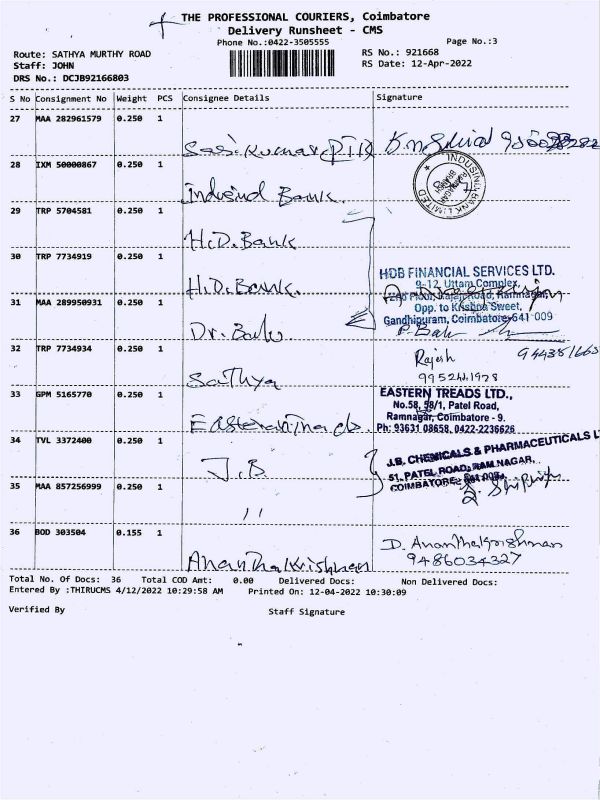 THE PROFESSIONAL COURIERS, Coimbatore
Delivery Runsheet - CMS
Phone No.:0422-3505555
Page No.:3
Route: SATHYA MURTHY ROAD
RS No.: 921668
Staff: JOHN
RS Date: 12-Apr-2022
DRS No.: DCJB92166803
S No Consignment No Weight PCS Consignee Details Signature
27 MAA 282961579 0.250 1
28 IXM 50000867 0.250 1
Indusind Bank.
INDUSIND BANK LIMITED
29 TRP 5704581 0.250 1
H.D.Bank
30 TRP 7734919 0.250 1
H.D.Bank.
HDB FINANCIAL SERVICES LTD.
9-12, Uttam Complex,
Opp. to Krishna Sweet,
Gandhipuram, Coimbatore-641 009
31 MAA 289950931 0.250 1
Dr. Balu
32 TRP 7734934 0.250 1
Sathya
Rajesh
33 GPM 5165770 0.250 1
EASTERN TREADS LTD.,
No.58, 58/1, Patel Road,
Ramnagar, Coimbatore - 9.
Ph: 93631 08658, 0422-2236626
34 TVL 3372400 0.250 1
J.B
J.B. CHEMICALS & PHARMACEUTICALS L
51, PATEL ROAD, RAM NAGAR,
COIMBATORE
35 MAA 857256999 0.250 1
"
36 BOD 303504 0.155 1
Ananthakrishnan
D. Ananthakrishnan
9486034327
Total No. Of Docs: 36 Total COD Amt: 0.00 Delivered Docs: Non Delivered Docs:
Entered By :THIRUCMS 4/12/2022 10:29:58 AM Printed On: 12-04-2022 10:30:09
Verified By Staff Signature